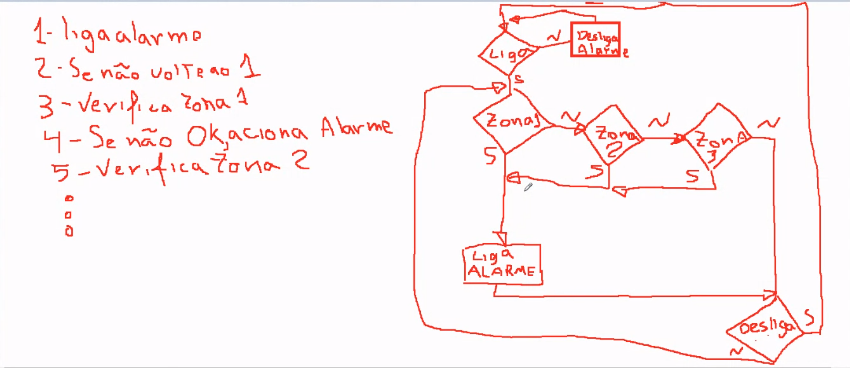 1-liga alarme
2-Se não volte ao 1
3-Verifica Zona 1
4-Se não Ok, aciona Alarme
5-Verifica Zona 2
Liga
N
Desliga
Alarme
S
Zona1
N
Zona
2
N
Zona
3
N
S
S
S
Liga
ALARME
Desliga
S
N